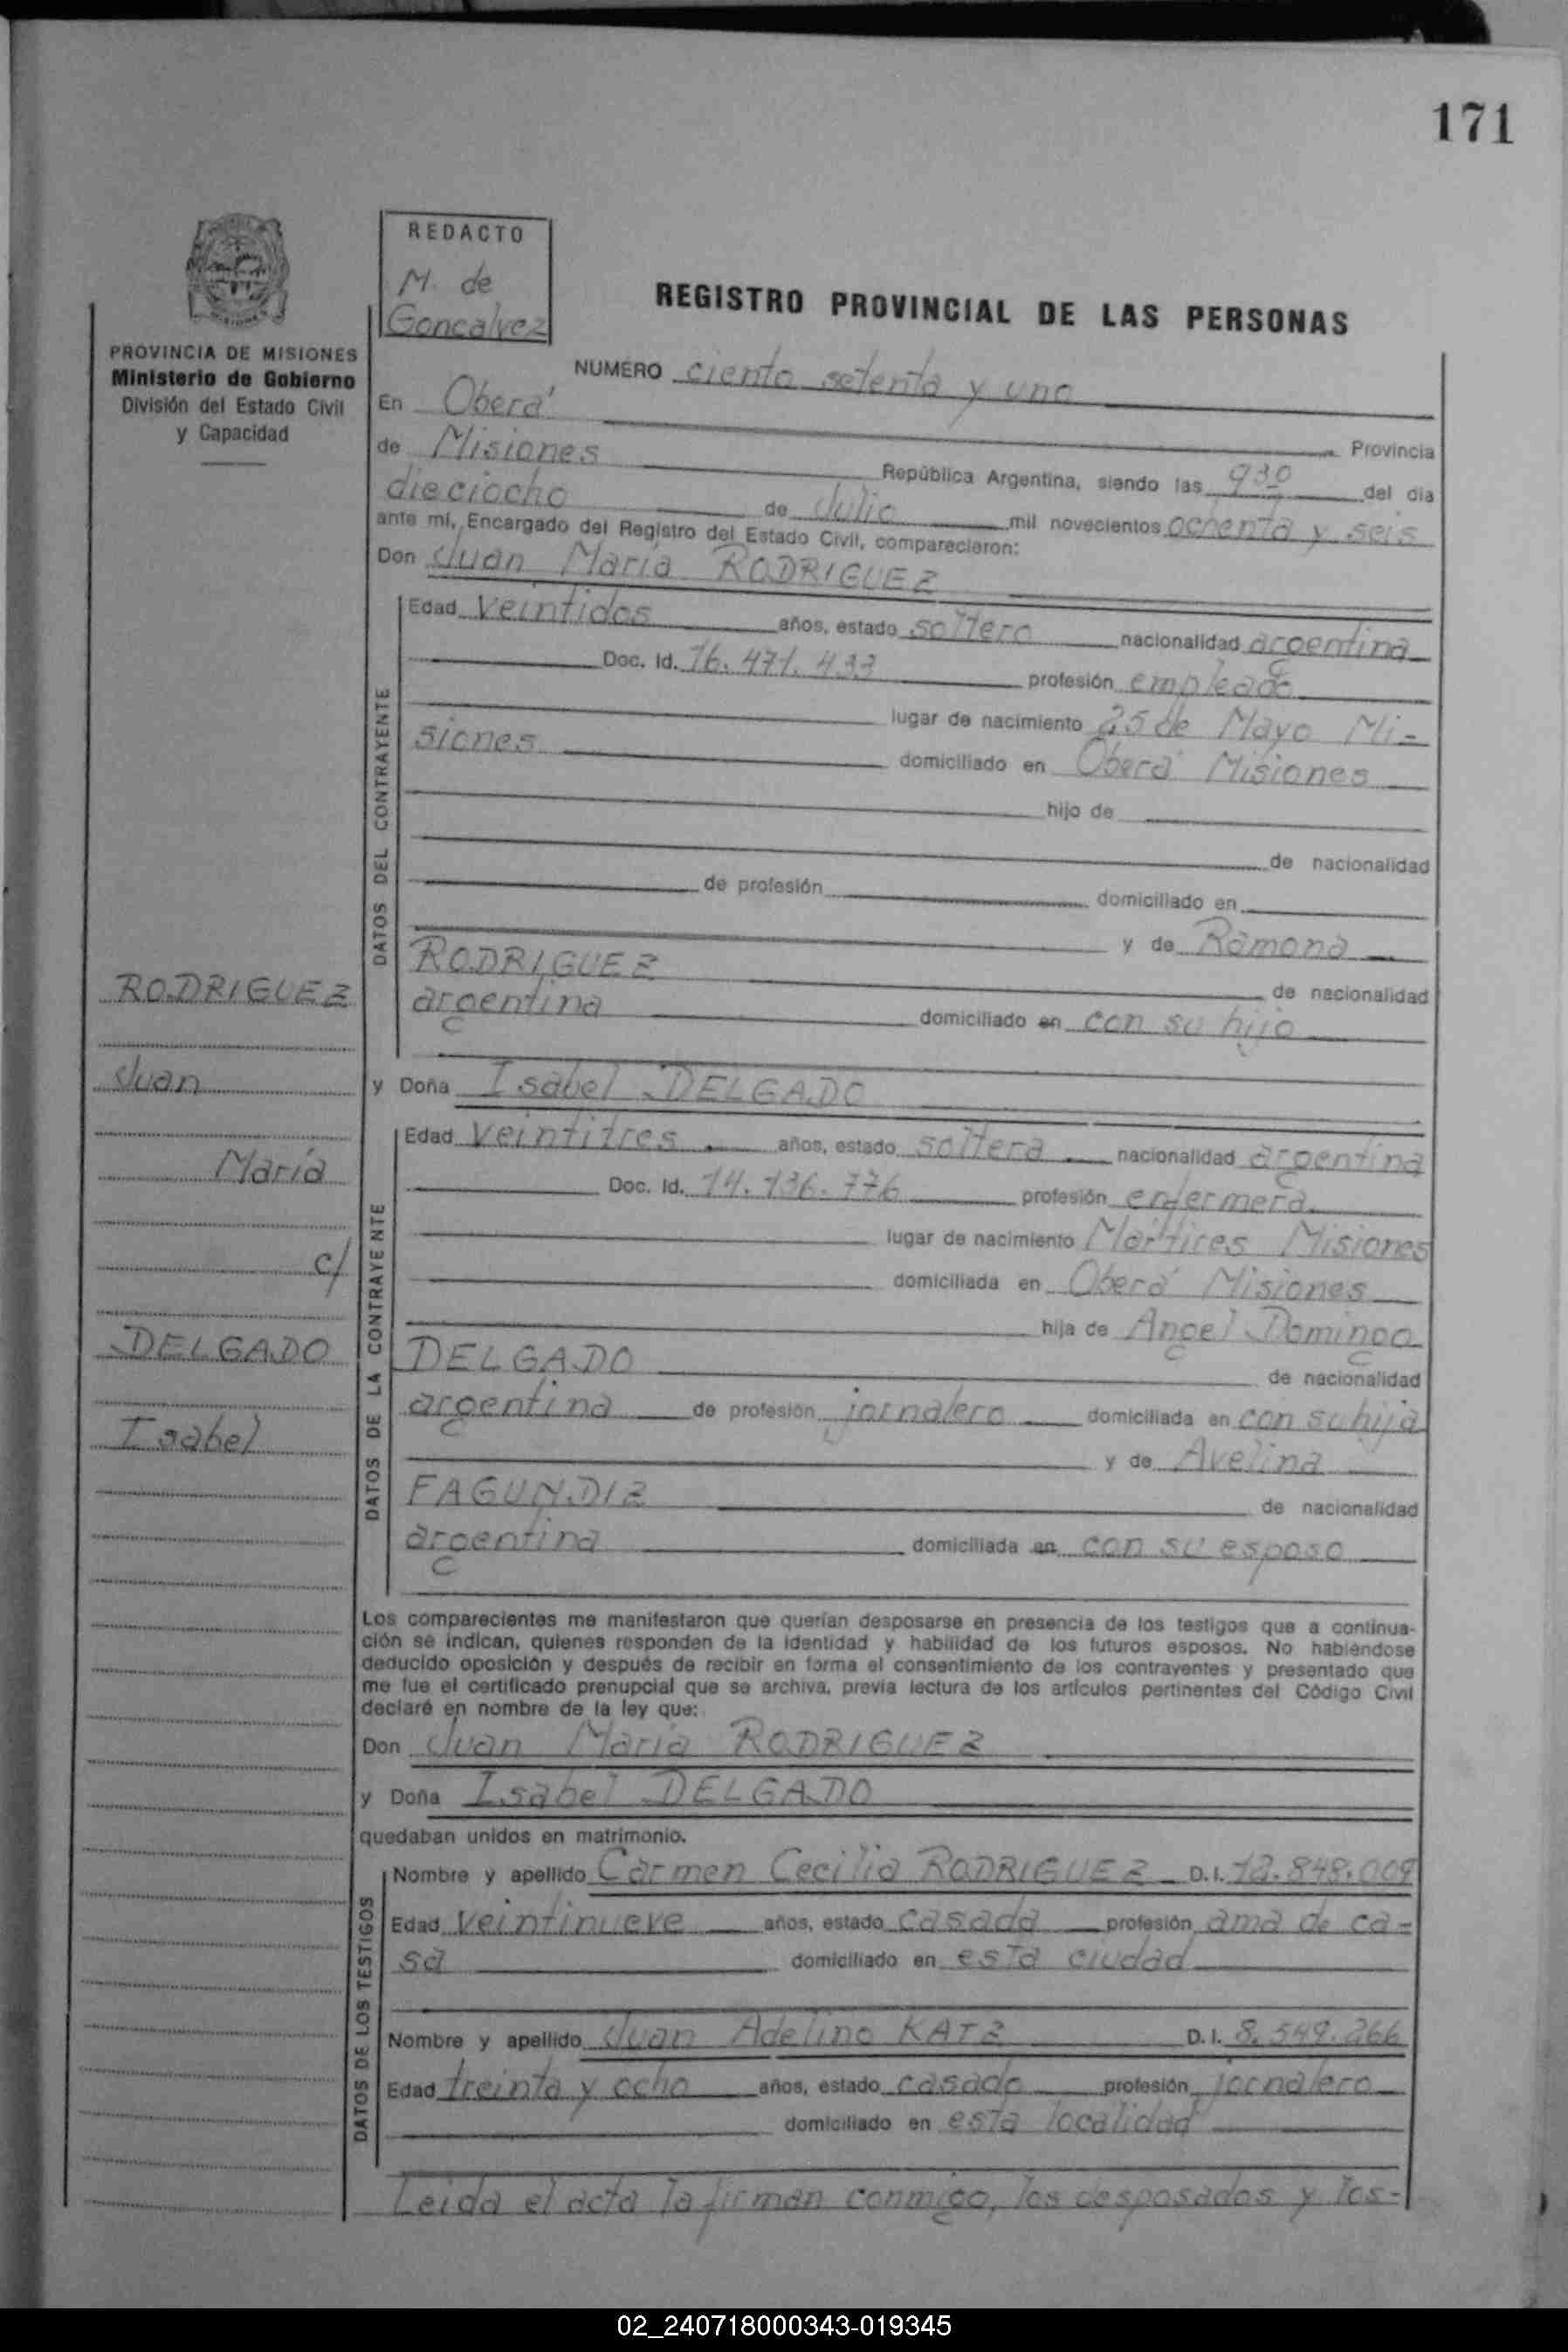 171
REDACTO
M. de
Goncalvez
REGISTRO PROVINCIAL DE LAS PERSONAS
PROVINCIA DE MISIONES
Ministerio de Gobierno
División del Estado Civil
y Capacidad
NUMERO ciento setenta y uno
En Oberá Provincia
de Misiones República Argentina, siendo las 930 del día
dieciocho de Julio mil novecientos ochenta y seis
ante mí, Encargado del Registro del Estado Civil, comparecieron:
Don Juan María RODRIGUEZ
DATOS DEL CONTRAYENTE
Edad veintidos años, estado soltero nacionalidad argentina
Doc. Id. 16.471.433 profesión empleado
lugar de nacimiento 25 de Mayo Mi-
siones domiciliado en Oberá Misiones
hijo de
de nacionalidad
de profesión domiciliado en
y de Ramona
RODRIGUEZ de nacionalidad
argentina domiciliado en con su hijo
y Doña Isabel DELGADO
DATOS DE LA CONTRAYENTE
Edad veintitres años, estado soltera nacionalidad argentina
Doc. Id. 14.136.776 profesión enfermera
lugar de nacimiento Mártires Misiones
domiciliada en Oberá Misiones
hija de Angel Domingo
DELGADO de nacionalidad
argentina de profesión jornalero domiciliada en con su hija
y de Avelina
FAGUNDIZ de nacionalidad
argentina domiciliada en con su esposo
RODRIGUEZ
Juan
María
c/
DELGADO
Isabel
Los comparecientes me manifestaron que querían desposarse en presencia de los testigos que a continua-
ción se indican, quienes responden de la identidad y habilidad de los futuros esposos. No habiéndose
deducido oposición y después de recibir en forma el consentimiento de los contrayentes y presentado que
me fue el certificado prenupcial que se archiva, previa lectura de los artículos pertinentes del Código Civil
declaré en nombre de la ley que:
Don Juan María RODRIGUEZ
y Doña Isabel DELGADO
quedaban unidos en matrimonio.
DATOS DE LOS TESTIGOS
Nombre y apellido Carmen Cecilia RODRIGUEZ D.I. 12.848.009
Edad veintinueve años, estado casada profesión ama de ca-
sa domiciliado en esta ciudad
Nombre y apellido Juan Adelino KATZ D.I. 8.549.266
Edad treinta y ocho años, estado casado profesión jornalero
domiciliado en esta localidad
Leida el acta la firman conmigo, los desposados y los-
02_240718000343-019345